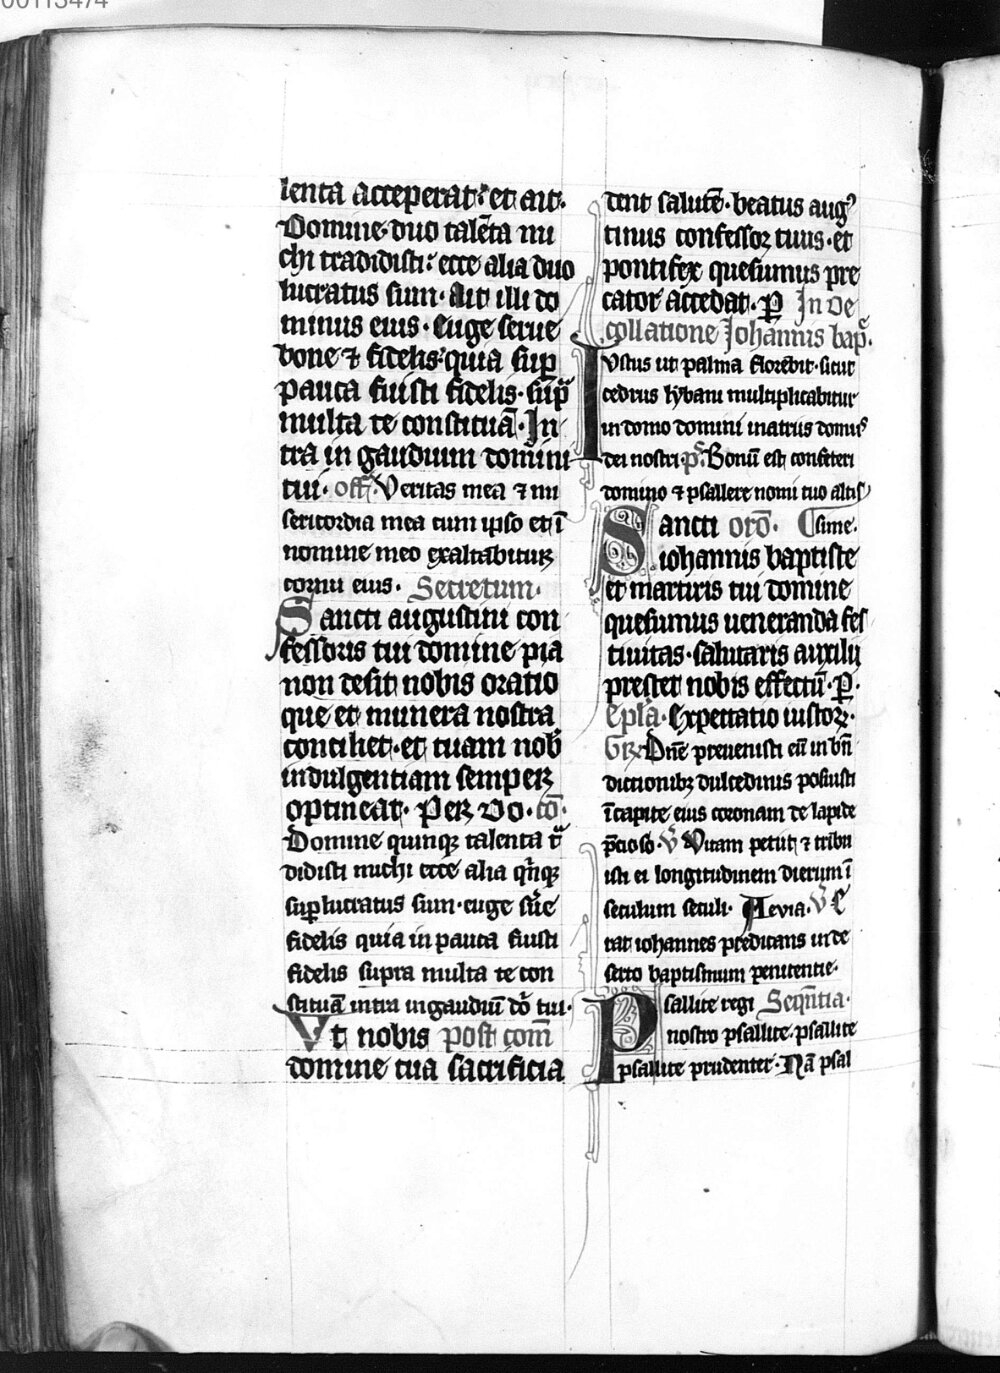 00113474
lenta acceperat: et ait.
Domine duo talēta mi
chi tradidisti: ecce alia duo
lucratus sum. Ait illi do
minus eius. Euge serue
bone ⁊ fidelis quia sup
pauca fuisti fidelis. supͣ
multa te constituā. In
tra in gaudium domini
tui. off. Veritas mea ⁊ mi
sericordia mea cum ipso et ī
nomine meo exaltabitur
cornu eius. Secretum.
Sancti augustini con
fessoris tui domine pia
non desit nobis oratio
que et munera nostra
conciliet. et tuam nob̄
indulgentiam semper
optineat. Per do. cō.
Domine quinqꝫ talenta tͣ
didisti michi ecce alia qͥnqꝫ
suꝑlucratus sum. euge sͬue
fidelis quia in pauca fuisti
fidelis supra multa te con
stituā intra in gaudiū dō tui.
Vt nobis post com̄
domine tua sacrificia
dent salutē. beatus augꝰ
tinus confessor tuus. et
pontifex quesumus pre
cator accedat. P In de
collatione Johannis bap̄.
Iustus ut palma florebit. sicut
cedrus lybani multiplicabitur
in domo domini in atriis domꝰ
dei nostri. p̄. Bonū est confiteri
domino ⁊ psallere nomi tuo altis
Sancti orō. sime.
iohannis baptiste
et martiris tui domine
quesumus ueneranda fes
tiuitas. salutaris auxilii
prestet nobis effectū. P.
epl̄a. Expectatio iustoꝝ.
Gr̄. Dn̄e preuenisti eū in bn̄
dictionibꝫ dulcedinis posuisti
ī capite eius coronam de lapide
p̄cioso. V Vitam petiit ⁊ tribu
isti ei longitudinem dierum ī
seculum seculi. Aeuia. V E
rat iohannes predicans in de
serto baptismum penitentie.
Psallite regi Seqn̄tia.
nostro psallite. psallite
psallite prudenter. Nā psal